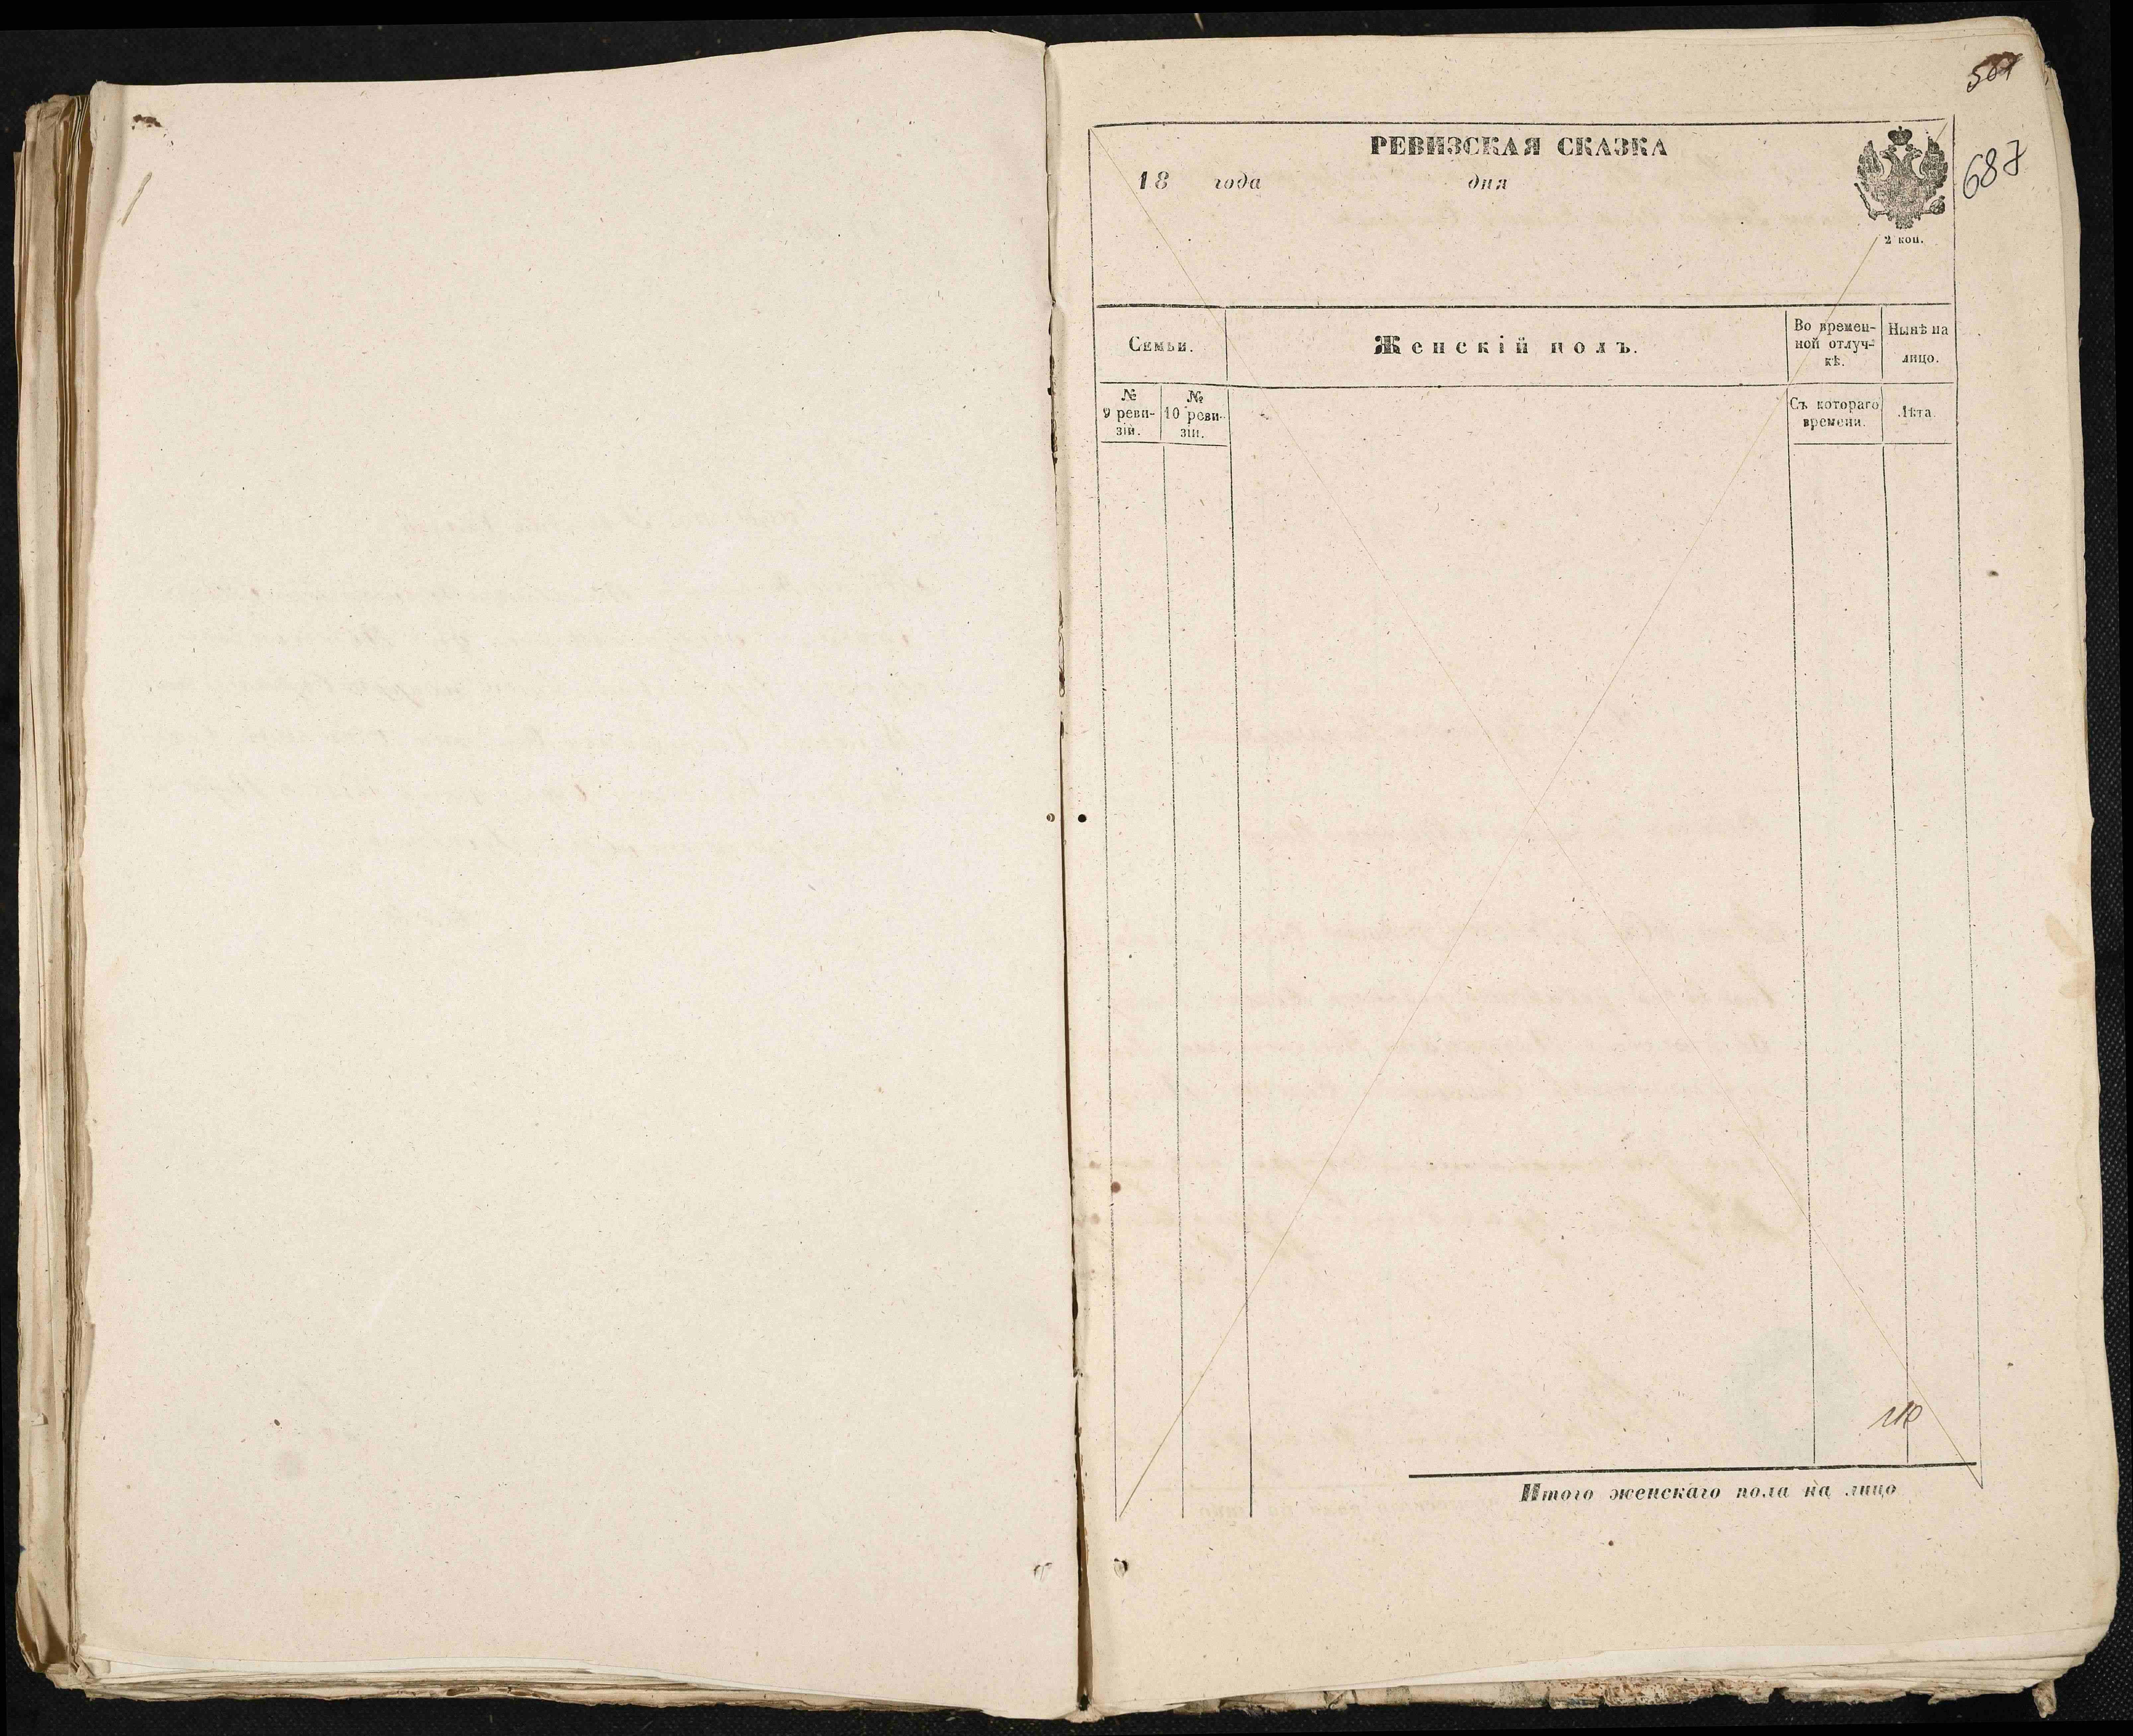 687
РЕВИЗСКАЯ СКАЗКА
18 года дня
2 коп.
Семьи.
Женскій полъ.
Во времен-
ной отлуч-
кѣ.
Нынѣ на
лицо.
№
9 реви-
зіи.
№
10 реви-
зіи.
Съ котораго
времени.
Лѣта.
Итого женскаго пола на лицо